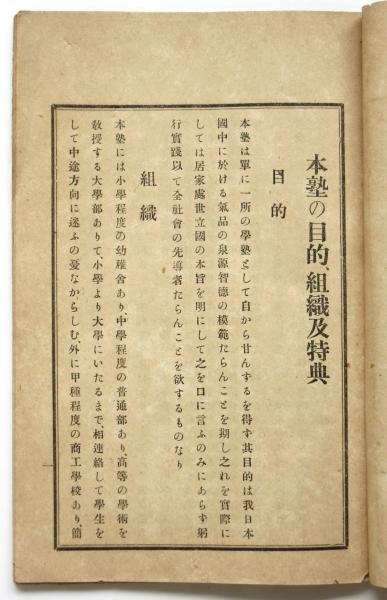 本塾の目的、組織及特典
目的
本塾は單に一所の學塾として自から甘んするを得す其目的は我日本
國中に於ける氣品の泉源智德の模範たらんことを期し之れを實際に
しては居家處世立國の本旨を明にして之を口に言ふのみにあらす躬
行實踐以て全社會の先導者たらんことを欲するものなり
組織
本塾には小學程度の幼稚舍あり、中學程度の普通部あり、高等の學術を
敎授する大學部ありて、小學より大學にいたるまで、相連絡して學生を
して中途方向に迷ふの憂なからしむ、外に甲種程度の商工學校あり簡